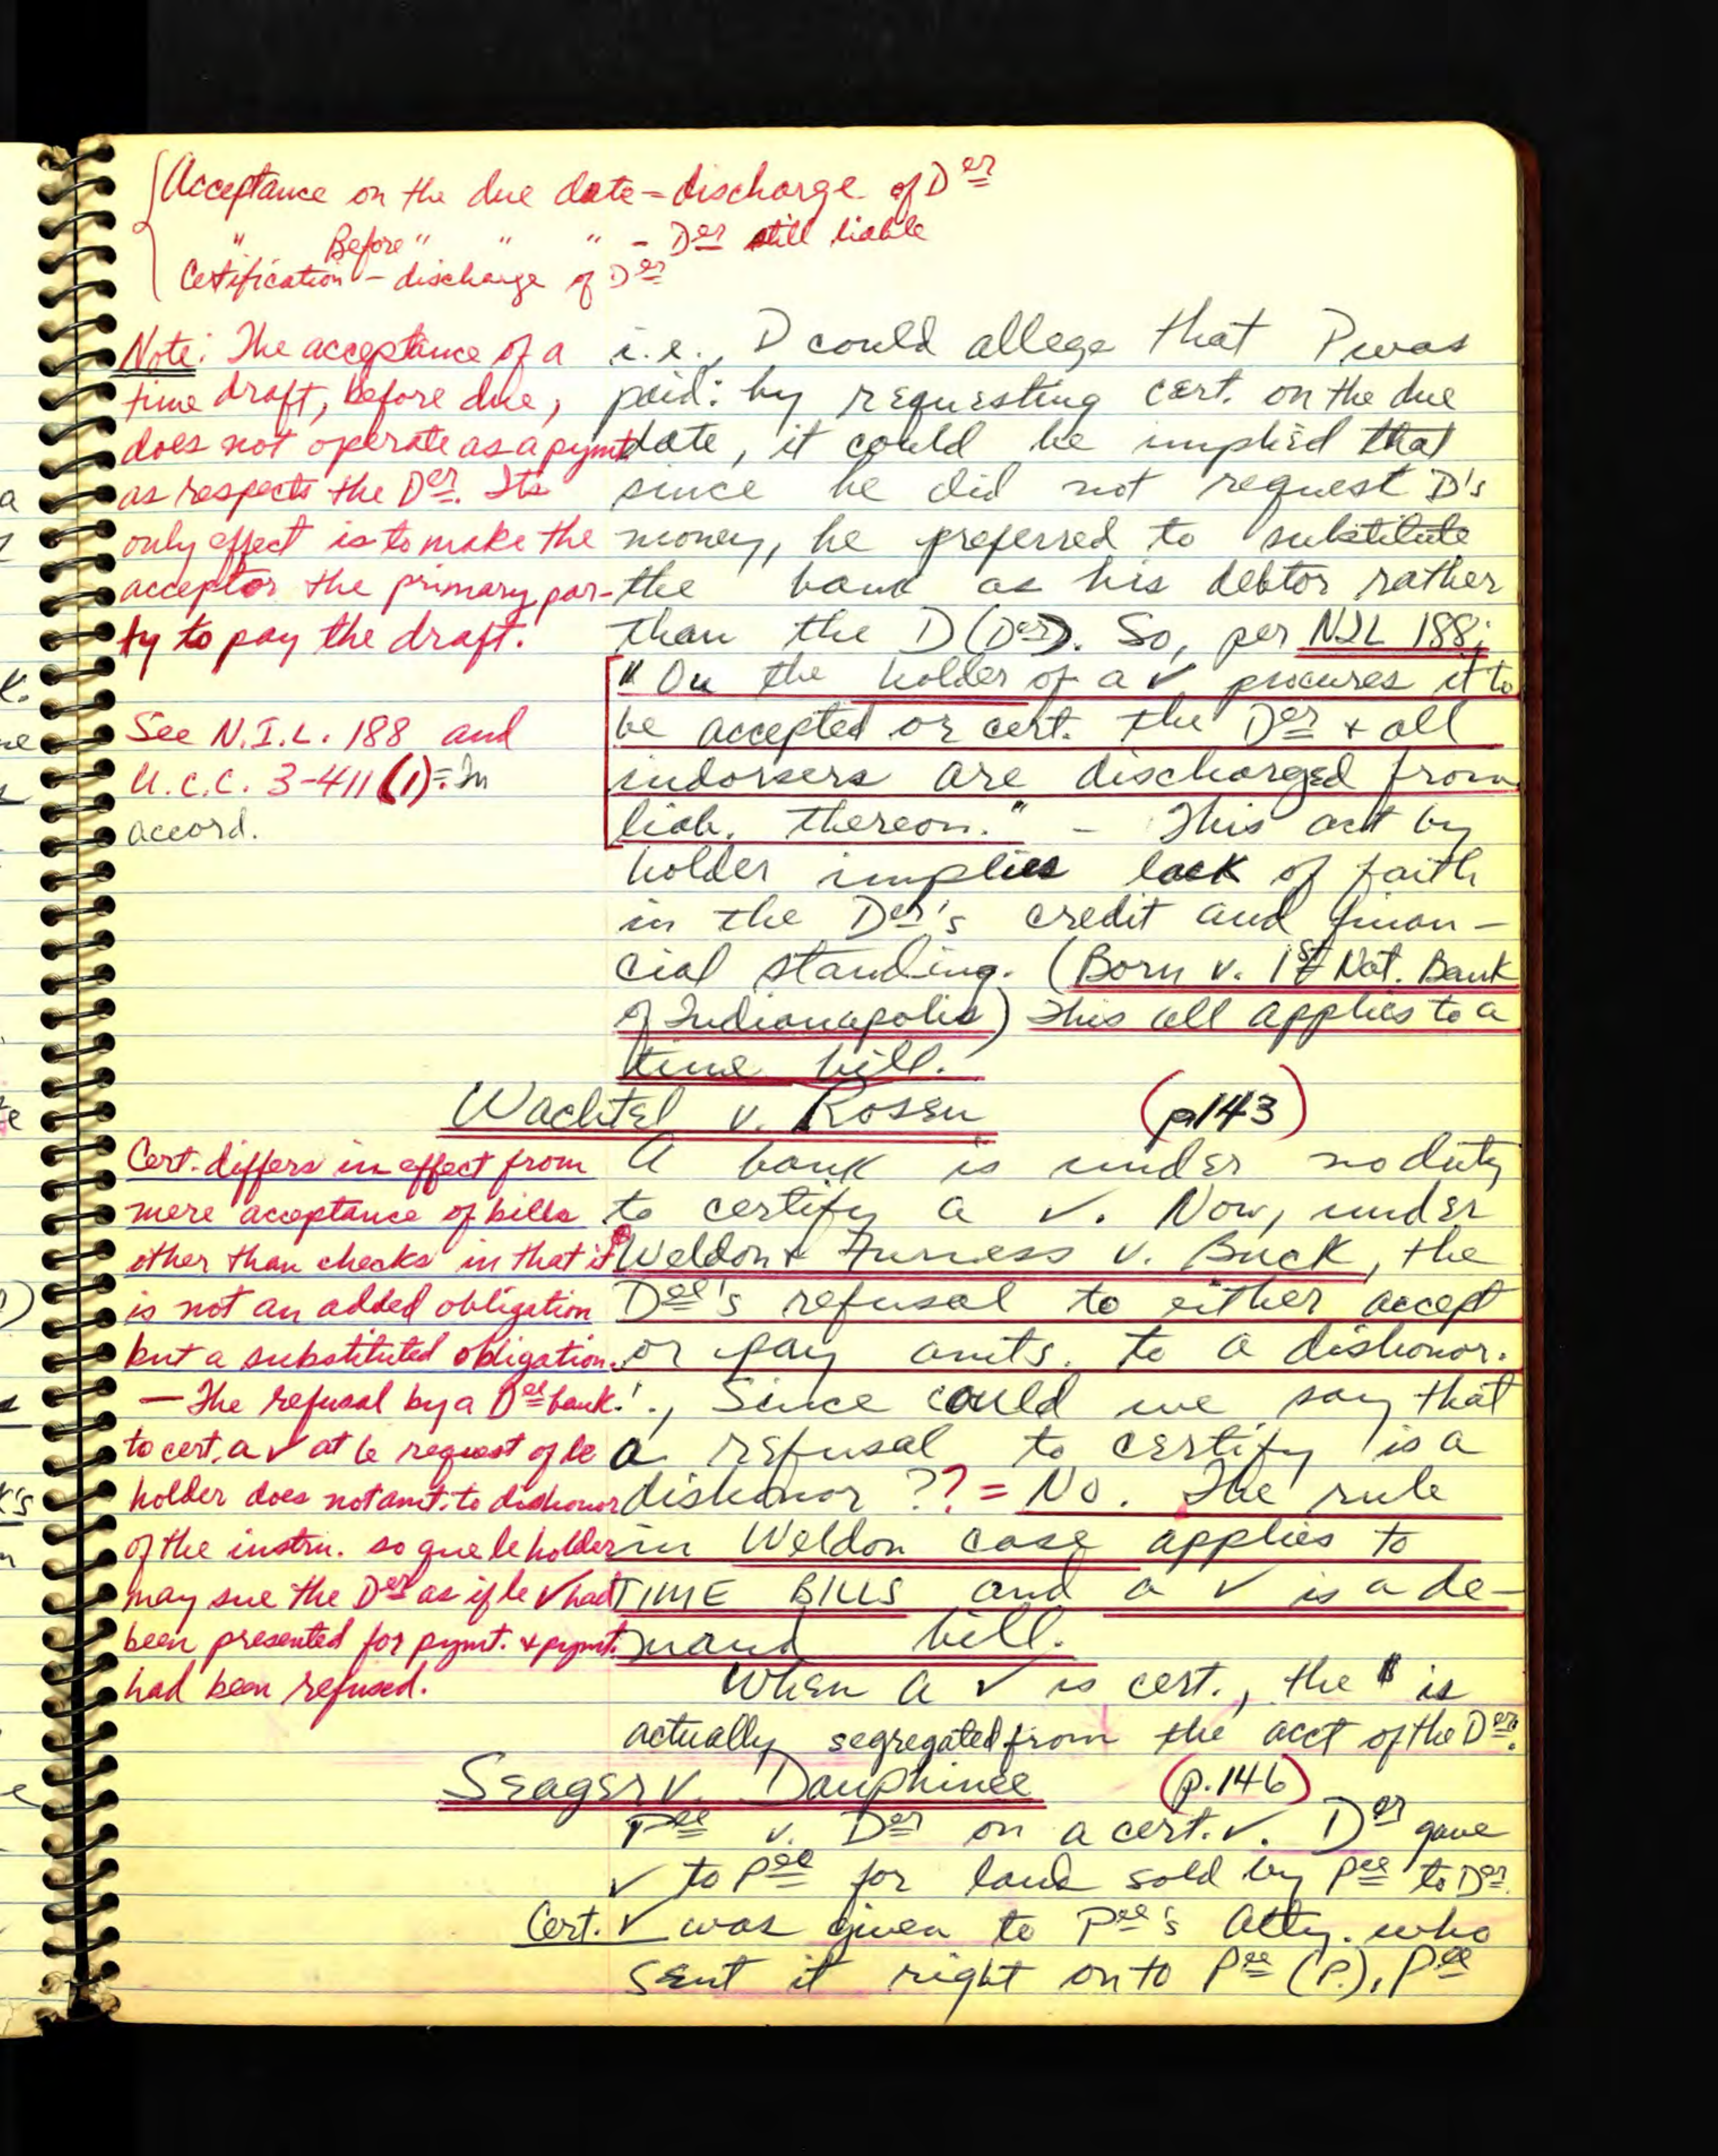 Acceptance on the due date = discharge of Der
" Before " " " - Der still liable
Certification - discharge of Der
Note: The acceptance of a
time draft, before due,
does not operate as a pymt
as respects the Der. Its
only effect is to make the
acceptor the primary par-
ty to pay the draft.
See N.I.L. 188 and
U.C.C. 3-411(1) = In
accord.
i.e., D could allege that P was
paid: by requesting cert. on the due
date, it could be implied that
since he did not request D's
money, he preferred to substitute
the bank as his debtor rather
than the D (Der). So, per NIL 188;
"On the holder of a ✓ procures it to
be accepted or cert. the Der + all
indorsers are discharged from
liab. thereon." - This act by
holder implies lack of faith
in the Der's credit and finan-
cial standing. (Born v. 1st Nat. Bank
of Indianapolis) This all applies to a
time bill.
Wachtel v. Rosen (p143)
Cert. differs in effect from
mere acceptance of bills
other than checks in that it
is not an added obligation
but a substituted obligation.
- The refusal by a Dee bank
to cert. a ✓ at le request of le
holder does not amt. to dishonor
of the instru. so que le holder
may sue the Der as if le ✓ had
been presented for pymt. + pymt.
had been refused.
A bank is under no duty
to certify a ✓. Now, under
Weldon + Furness v. Buck, the
Dee's refusal to either accept
or pay amts. to a dishonor.
∴, Since could we say that
a refusal to certify is a
dishonor ?? = No. The rule
in Weldon case applies to
TIME BILLS and a ✓ is a de-
mand bill.
When a ✓ is cert., the $ is
actually segregated from the acct of the Der.
Seager v. Dauphinee (p.146)
Pee v. Der on a cert. ✓. Der gave
✓ to Pee for land sold by Pee to Der.
Cert. ✓ was given to Pee's Atty. who
sent it right onto Pee (P.). Pee